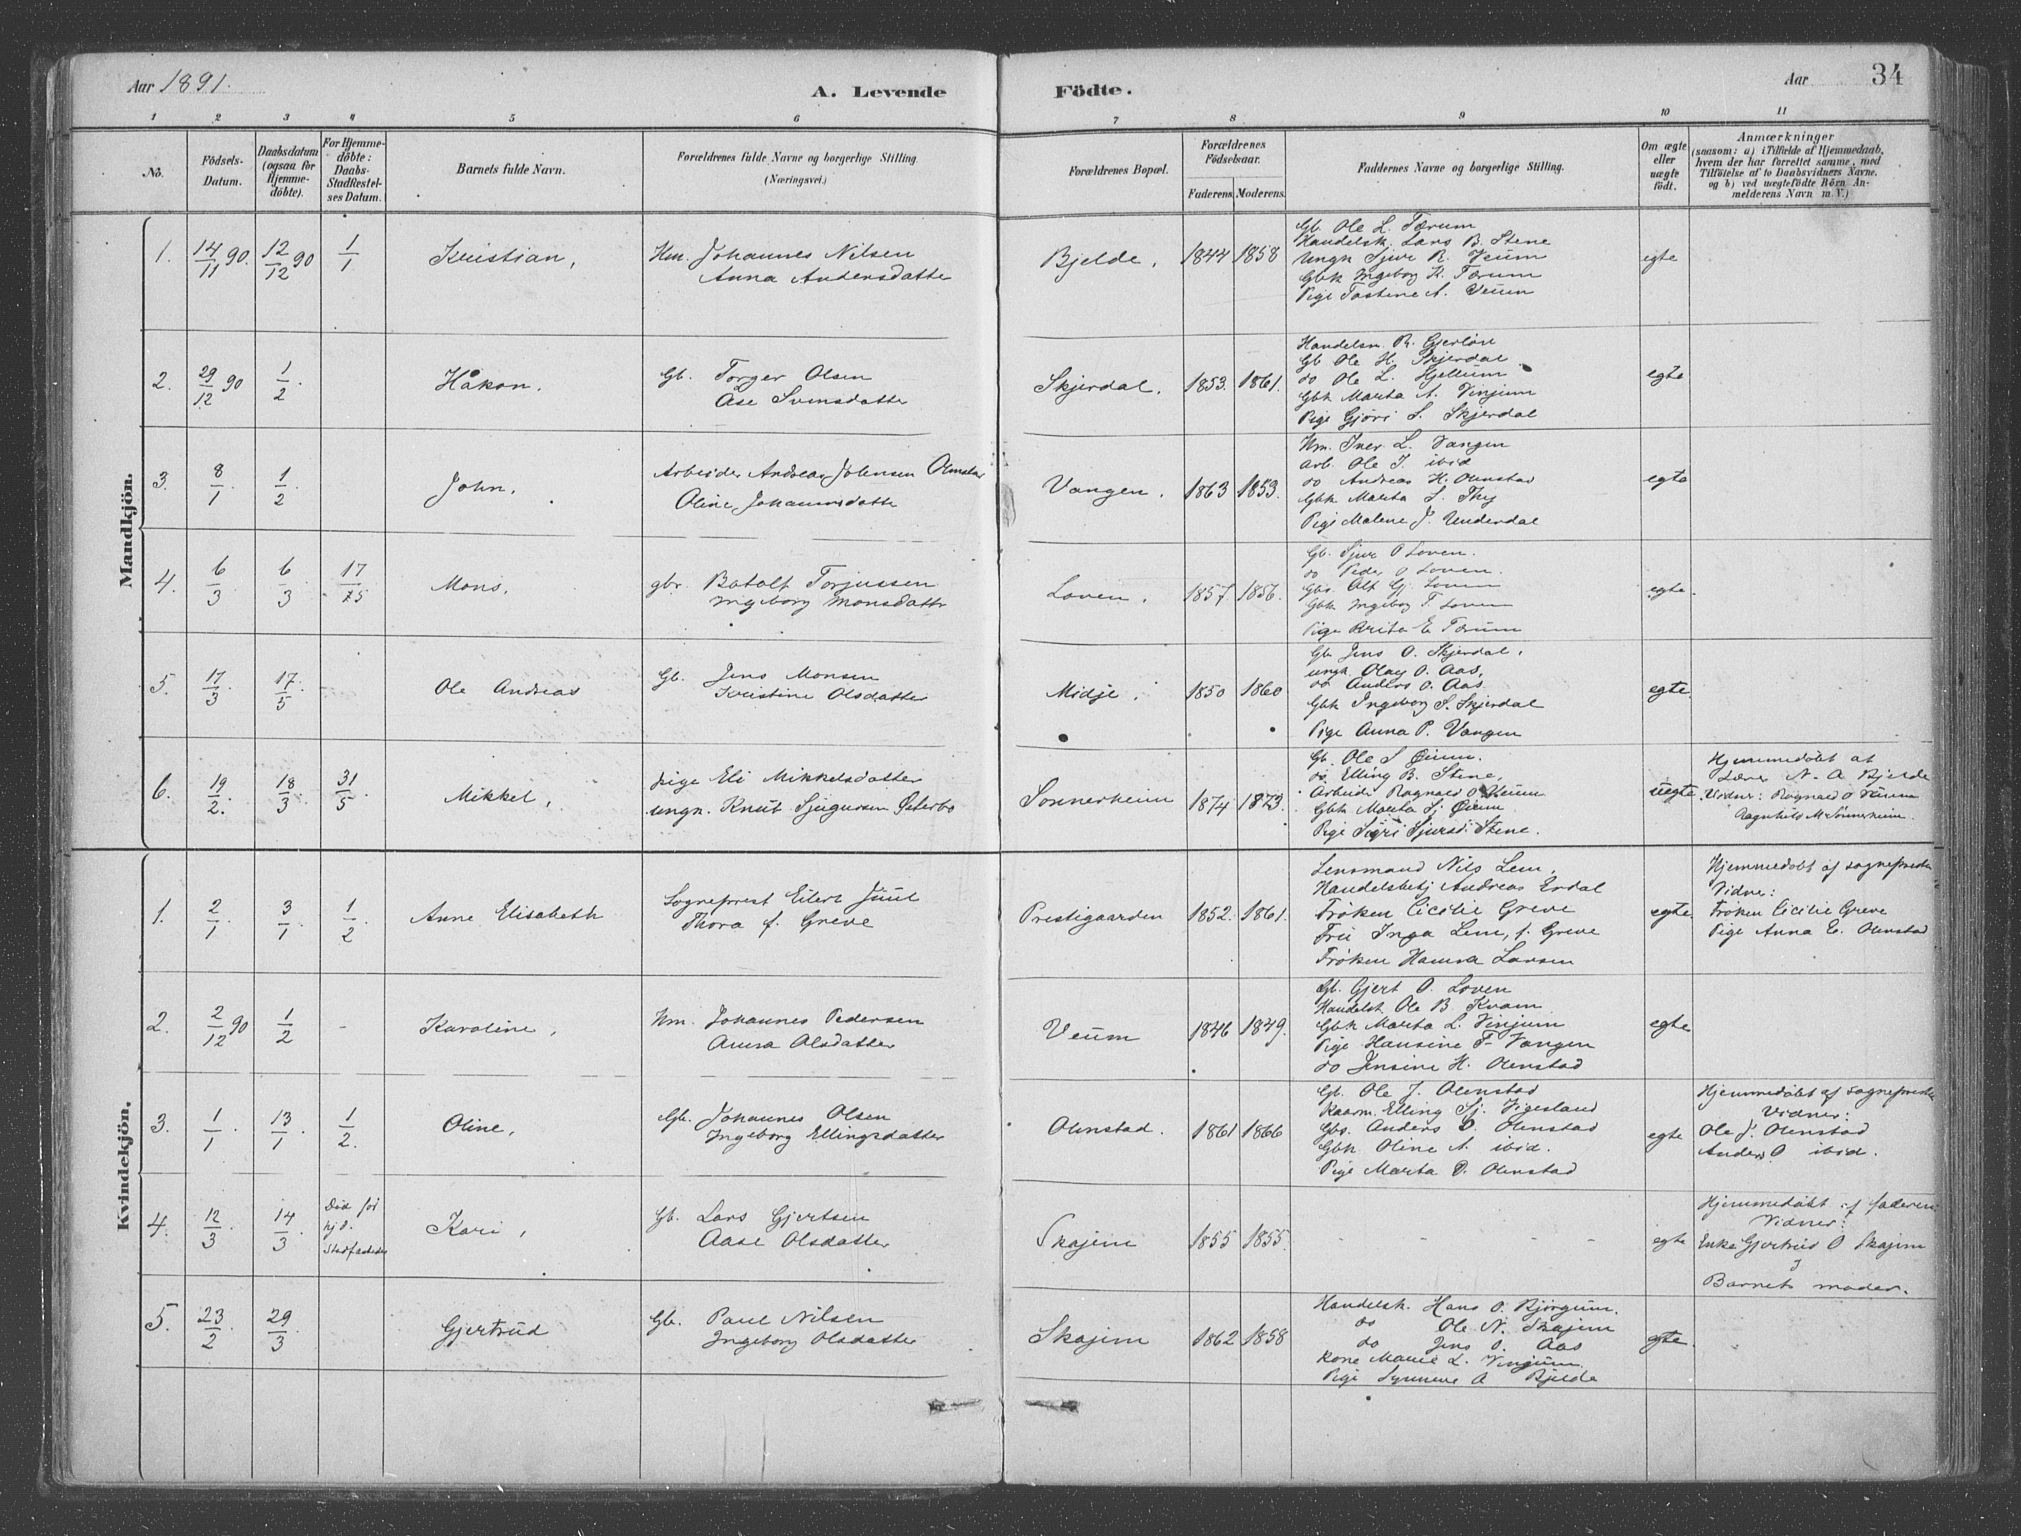 Aar 1891.
A. Levende
Födte.
Aar
34
1 2 3 4 5 6 7 8 9 10 11
No.
Födsels-Datum.
Daabsdatum (ogsaa for Hjemme-döbte).
For Hjemme-döbte: Daabs-Stadfæstel-ses Datum.
Barnets fulde Navn.
Forældrenes fulde Navne og borgerlige Stilling.
(Næringsvei.)
Forældrenes Bopæl.
Forældrenes Födselsaar.
Faderens Moderens.
Faddernes Navne og borgerlige Stilling.
Om ægte eller uægte födt.
Anmærkninger
(saasom: a) i Tilfælde af Hjemmedaab, hvem der har forrettet samme, med Tilföielse af to Daabsvidners Navne, og b) ved uægtefödte Börn An-melderens Navn m. V.)
Mandkjön.
1. 14/11 90. 12/12 90 1/1 Kristian, Hm. Johannes Nilsen
Anna Andersdatter
Bjelde. 1844 1858
Gb. Ole L. Tærum
Handelsk. Lars B. Stene
Ungk Sjur R. Veum
Gbk Ingeborg K. Tærum
Pige Tostine A. Veum
egte
2. 29/12 90 1/2 Håkon. Gb. Torger Olsen
Åse Svensdatter
Skjerdal. 1853. 1861.
Handelsm. R. Gjerløv
Gb Ole H. Skjerdal
do Ole L. Hjellum
Gbk Marta A. Vinjum
Pige Gjøri S. Skjerdal
egte
3. 8/1 1/2 John. Arbeider Andreas Johnsen
Oline Johannesdatter
Vangen. 1863 1853.
Hm. Iver L. Vangen
Arb. Ole J. ibid
do Andreas H. Olnstad
Gbk Marta L. Thy
Pige Malene J. Underdal
egte
4. 6/3 6/3 17/5 Mons. gbr. Botolf Torjussen
Ingeborg Monsdatter
Loven. 1857. 1856.
Gb. Sjur O Loven.
do Peder O Loven.
Gbs Olf Gj. Loven
Gbk Ingeborg T. Loven
Pige Brita E Tærum
egte
5. 17/3 17/5 Ole Andreas Gb. Jens Monsen
Kristine Olsdatter
Midje. 1850 1860
Gb Jens O. Skjerdal.
ungk Olav O. Aas.
do Anders O. Aas
Gbk Ingeborg S. Skjerdal
Pige Anna P. Vangen
egte
6. 19/2. 18/3 31/5 Mikkel, pige Eli Mikkelsdatter
ungk. Knut Sjugursen Østerbø
Sonnerheim 1874 1873.
Gb. Ole S Øium.
do. Elling B. Stene,
Arbeider Ragnald O Veum
Gbk Marta Sj Øium
Pige Siğri Sjursd. Stene.
uegte.
Hjemmedøbt af
Lærer N. A Bjelde
Vidner: Ragnald O Veum
Ragnhild M Sonnerheim.
Kvindekjön.
1. 2/1 3/1 1/2 Anne Elisabeth Sogneprest Eilert Juul
Thora f. Greve
Prestigaarden 1852. 1861.
Lensmand Nils Lem,
Handelsbetj Andreas Erdal
Frøken Cicilie Greve
Frü Inga Lem, f. Greve
Frøken Hanna Larsen
egte
Hjemmedøbt af sognepresten
Vidne:
Frøken Cicilie Greve
Pige Anna E. Olnstad
2. 2/12 90 1/2 - Karoline, Hm. Johannes Pedersen
Anna Olsdatter
Veum 1846 1849.
Gb. Gjert O. Loven
Handelsk Ole B Kvam
Gbk Marta L. Vinjum
Pige Hansine F. Vangen
do Jensine H. Olnstad
egte
3. 1/1 13/1 1/2. Oline, Gb. Johannes Olsen
Ingeborg Ellingsdatter
Olnstad. 1861 1866
Gb. Ole J. Olnstad
Kaarm. Elling Sj. Vigesland
Gbs. Anders O. Olnstad
Gbk Oline A. ibid.
Pige Marta D. Olnstad
egte
Hjemmedøbt af sognepresten
Vidner:
Ole J. Olnstad
Anders O ibid.
4. 12/3 14/3 Død før
hjd.
Stadfæstedes
Kari, Gb. Lars Gjertsen
Aase Olsdatter
Skajem 1855 1855. - - - -
egte
Hjemmedøbt af faderen
Vidner:
Enke Gjertrud O Skajem
Barnets moder.
5. 23/2 29/3 Gjertrud Gb. Paul Nilsen
Ingeborg Olsdatter
Skajem 1862 1858
Handelsk. Hans O. Bjørgum.
do Ole N. Skajem
do Jens O. Aas
Kone Marie L. Vinjum
Pige Synneve A Bjelde
egte.